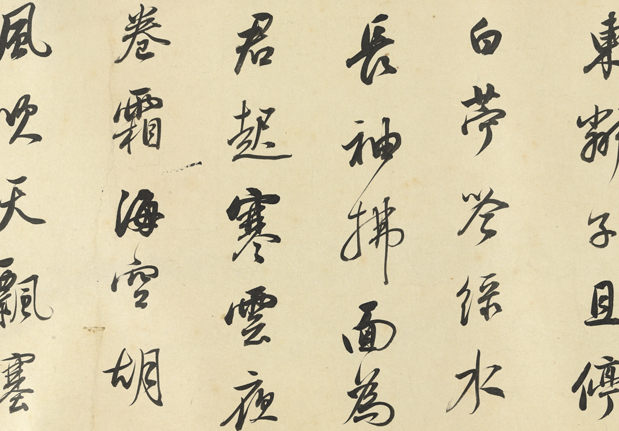 東鄰子且停
白苧綠水
長袖拂面為
君起寒雲夜
卷霜海空胡
風吹天飄塞